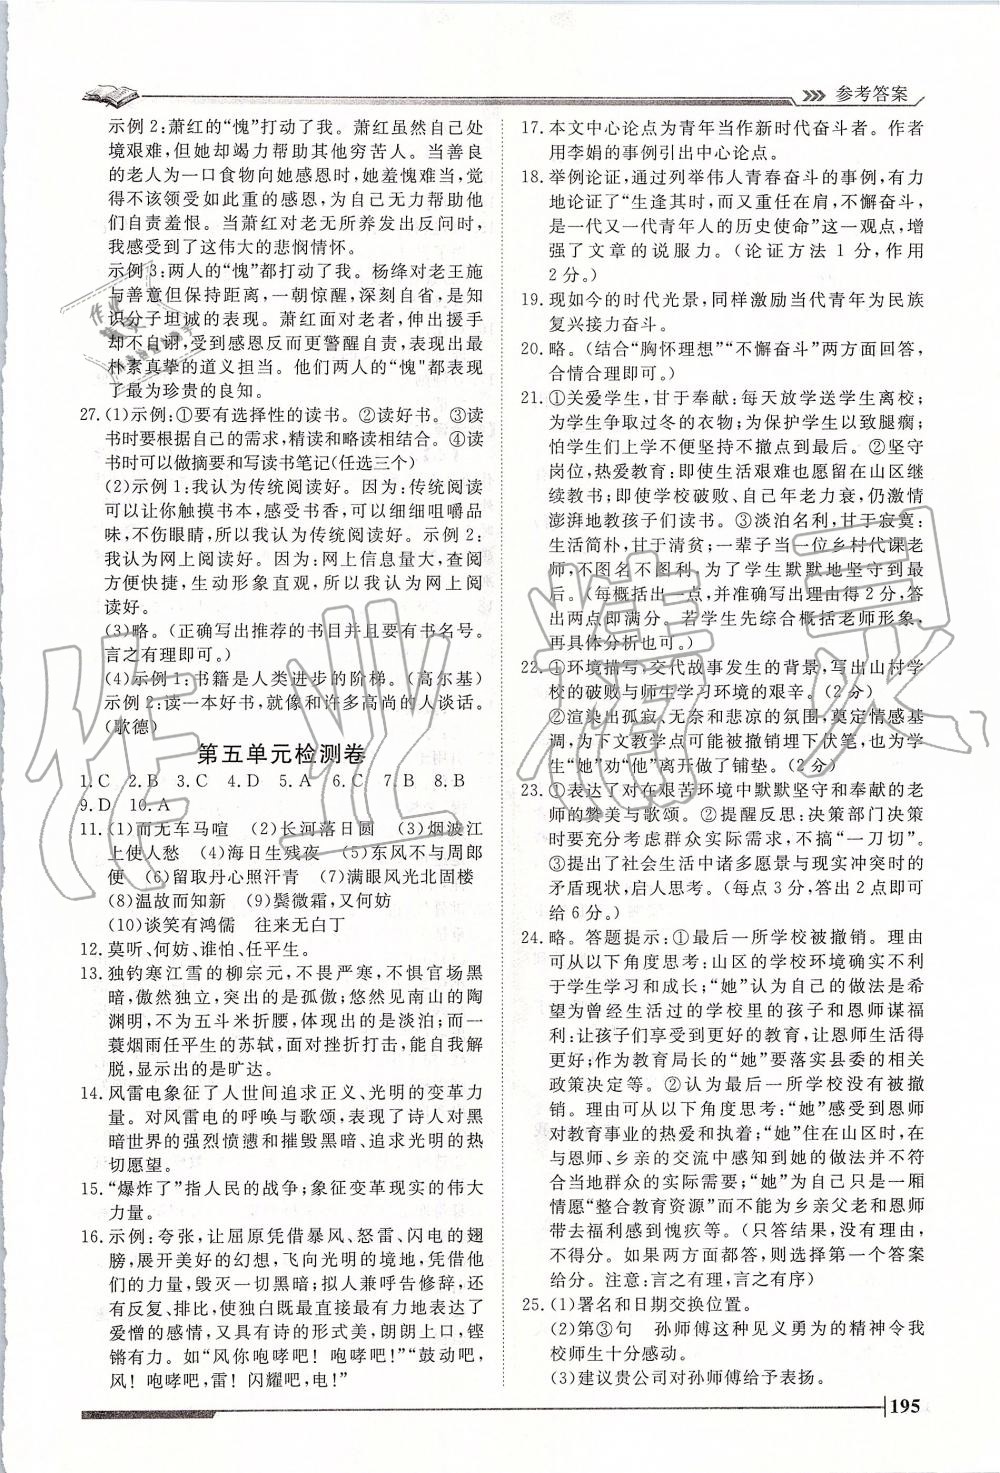 参考答案
示例2:萧红的“愧”打动了我。萧红虽然自己处
境艰难,但她却竭力帮助其他穷苦人。当善良
的老人为一口食物向她感恩时,她羞愧难当,觉
得不该领受如此重的感恩,为自己无力帮助他
们自责羞恨。当萧红对老无所养发出反问时,
我感受到了这伟大的悲悯情怀。
示例3:两人的“愧”都打动了我。杨绛对老王施
与善意但保持距离,一朝惊醒,深刻自省,是知
识分子坦诚的表现。萧红面对老者,伸出援手
却不自诩,受到感恩反而更警醒自责,表现出最
朴素真挚的道义担当。他们两人的“愧”都表现
了最为珍贵的良知。
27.(1)示例:①要有选择性的读书。②读好书。③读
书时要根据自己的需求,精读和略读相结合。④读
书时可以做摘要和写读书笔记(任选三个)
(2)示例1:我认为传统阅读好。因为:传统阅读
可以让你触摸书本,感受书香,可以细细咀嚼品
味,不伤眼睛,所以我认为传统阅读好。示例2:
我认为网上阅读好。因为:网上信息量大,查阅
方便快捷,生动形象直观,所以我认为网上阅
读好。
(3)略。(正确写出推荐的书目并且要有书名号。
言之有理即可。)
(4)示例1:书籍是人类进步的阶梯。(高尔基)
示例2:读一本好书,就像和许多高尚的人谈话。
(歌德)
第五单元检测卷
1.C 2.B 3.C 4.D 5.A 6.C 7.B 8.B
9.D 10.A
11.(1)而无车马喧 (2)长河落日圆 (3)烟波江
上使人愁 (4)海日生残夜 (5)东风不与周郎
便 (6)留取丹心照汗青 (7)满眼风光北固楼
(8)温故而知新 (9)鬓微霜,又何妨
(10)谈笑有鸿儒 往来无白丁
12.莫听、何妨、谁怕、任平生。
13.独钓寒江雪的柳宗元,不畏严寒,不惧官场黑
暗,傲然独立,突出的是孤傲;悠然见南山的陶
渊明,不为五斗米折腰,体现出的是淡泊;而一
蓑烟雨任平生的苏轼,面对挫折打击,能自我解
脱,显示出的是旷达。
14.风雷电象征了人世间追求正义、光明的变革力
量。对风雷电的呼唤与歌颂,表现了诗人对黑
暗世界的强烈愤懑和摧毁黑暗、追求光明的热
切愿望。
15.“爆炸了”指人民的战争;象征变革现实的伟大
力量。
16.示例:夸张,让屈原凭借暴风、怒雷、闪电的翅
膀,展开美好的幻想,飞向光明的境地,凭借他
们的力量,毁灭一切黑暗;拟人兼呼告修辞,还
有反复、排比,使独白既最直接最有力地表达了
爱憎的感情,又具有诗的形式美,朗朗上口,铿
锵有力。如“风你咆哮吧!咆哮吧!”“鼓动吧,
风!咆哮吧,雷!闪耀吧,电!”
17.本文中心论点为青年当作新时代奋斗者。作者
用李娟的事例引出中心论点。
18.举例论证,通过列举伟人青春奋斗的事例,有力
地论证了“生逢其时,而又重任在肩,不懈奋斗,
是一代又一代青年人的历史使命”这一观点,增
强了文章的说服力。(论证方法1分,作用
2分。)
19.现如今的时代光景,同样激励当代青年为民族
复兴接力奋斗。
20.略。(结合“胸怀理想”“不懈奋斗”两方面回答,
合情合理即可。)
21.①关爱学生,甘于奉献:每天放学送学生离校;
为学生争取过冬的衣物;为保护学生以致腿瘸;
怕学生们上学不便坚持不撤点到最后。②坚守
岗位,热爱教育:即使生活艰难也愿留在山区继
续教书;即使学校破败、自己年老力衰,仍激情
澎湃地教孩子们读书。③淡泊名利,甘于寂寞:
生活简朴,甘于清贫;一辈子当一位乡村代课老
师,不图名不图利,为了学生默默地坚守到最
后。(每概括出一点,并准确写出理由得2分,答
出两点即满分。若学生先综合概括老师形象,
再具体分析也可。)
22.①环境描写,交代故事发生的背景,写出山村学
校的破败与师生学习环境的艰辛。(2分)
②渲染出孤寂、无奈和悲凉的氛围,奠定情感基
调,为下文教学点可能被撤销埋下伏笔,也为学
生“她”劝“他”离开做了铺垫。(2分)
23.①表达了对在艰苦环境中默默坚守和奉献的老
师的赞美与歌颂。②提醒反思:决策部门决策
时要充分考虑群众实际需求,不搞“一刀切”。
③提出了社会生活中诸多愿景与现实冲突时的
矛盾现状,启人思考。(每点3分,答出2点即可
给6分。)
24.略。答题提示:①最后一所学校被撤销。理由
可从以下角度思考:山区的学校环境确实不利
于学生学习和成长;“她”认为自己的做法是希
望为曾经生活过的学校里的孩子和恩师谋福
利:让孩子们享受到更好的教育,让恩师生活得
更好;作为教育局长的“她”要落实县委的相关
政策决定等。②认为最后一所学校没有被撤
销。理由可以从以下角度思考:“她”感受到恩师
对教育事业的热爱和执着;“她”住在山区时,在
与恩师、乡亲的交流中感知到她的做法并不符
合当地群众的实际需要;“她”为自己只是一厢
情愿“整合教育资源”而不能为乡亲父老和恩师
带去福利感到愧疚等。(只答结果,没有理由,
不得分。如果两方面都答,则选择第一个答案
给分。注意:言之有理,言之有序)
25.(1)署名和日期交换位置。
(2)第③句 孙师傅这种见义勇为的精神令我
校师生十分感动。
(3)建议贵公司对孙师傅给予表扬。
195
作业精灵